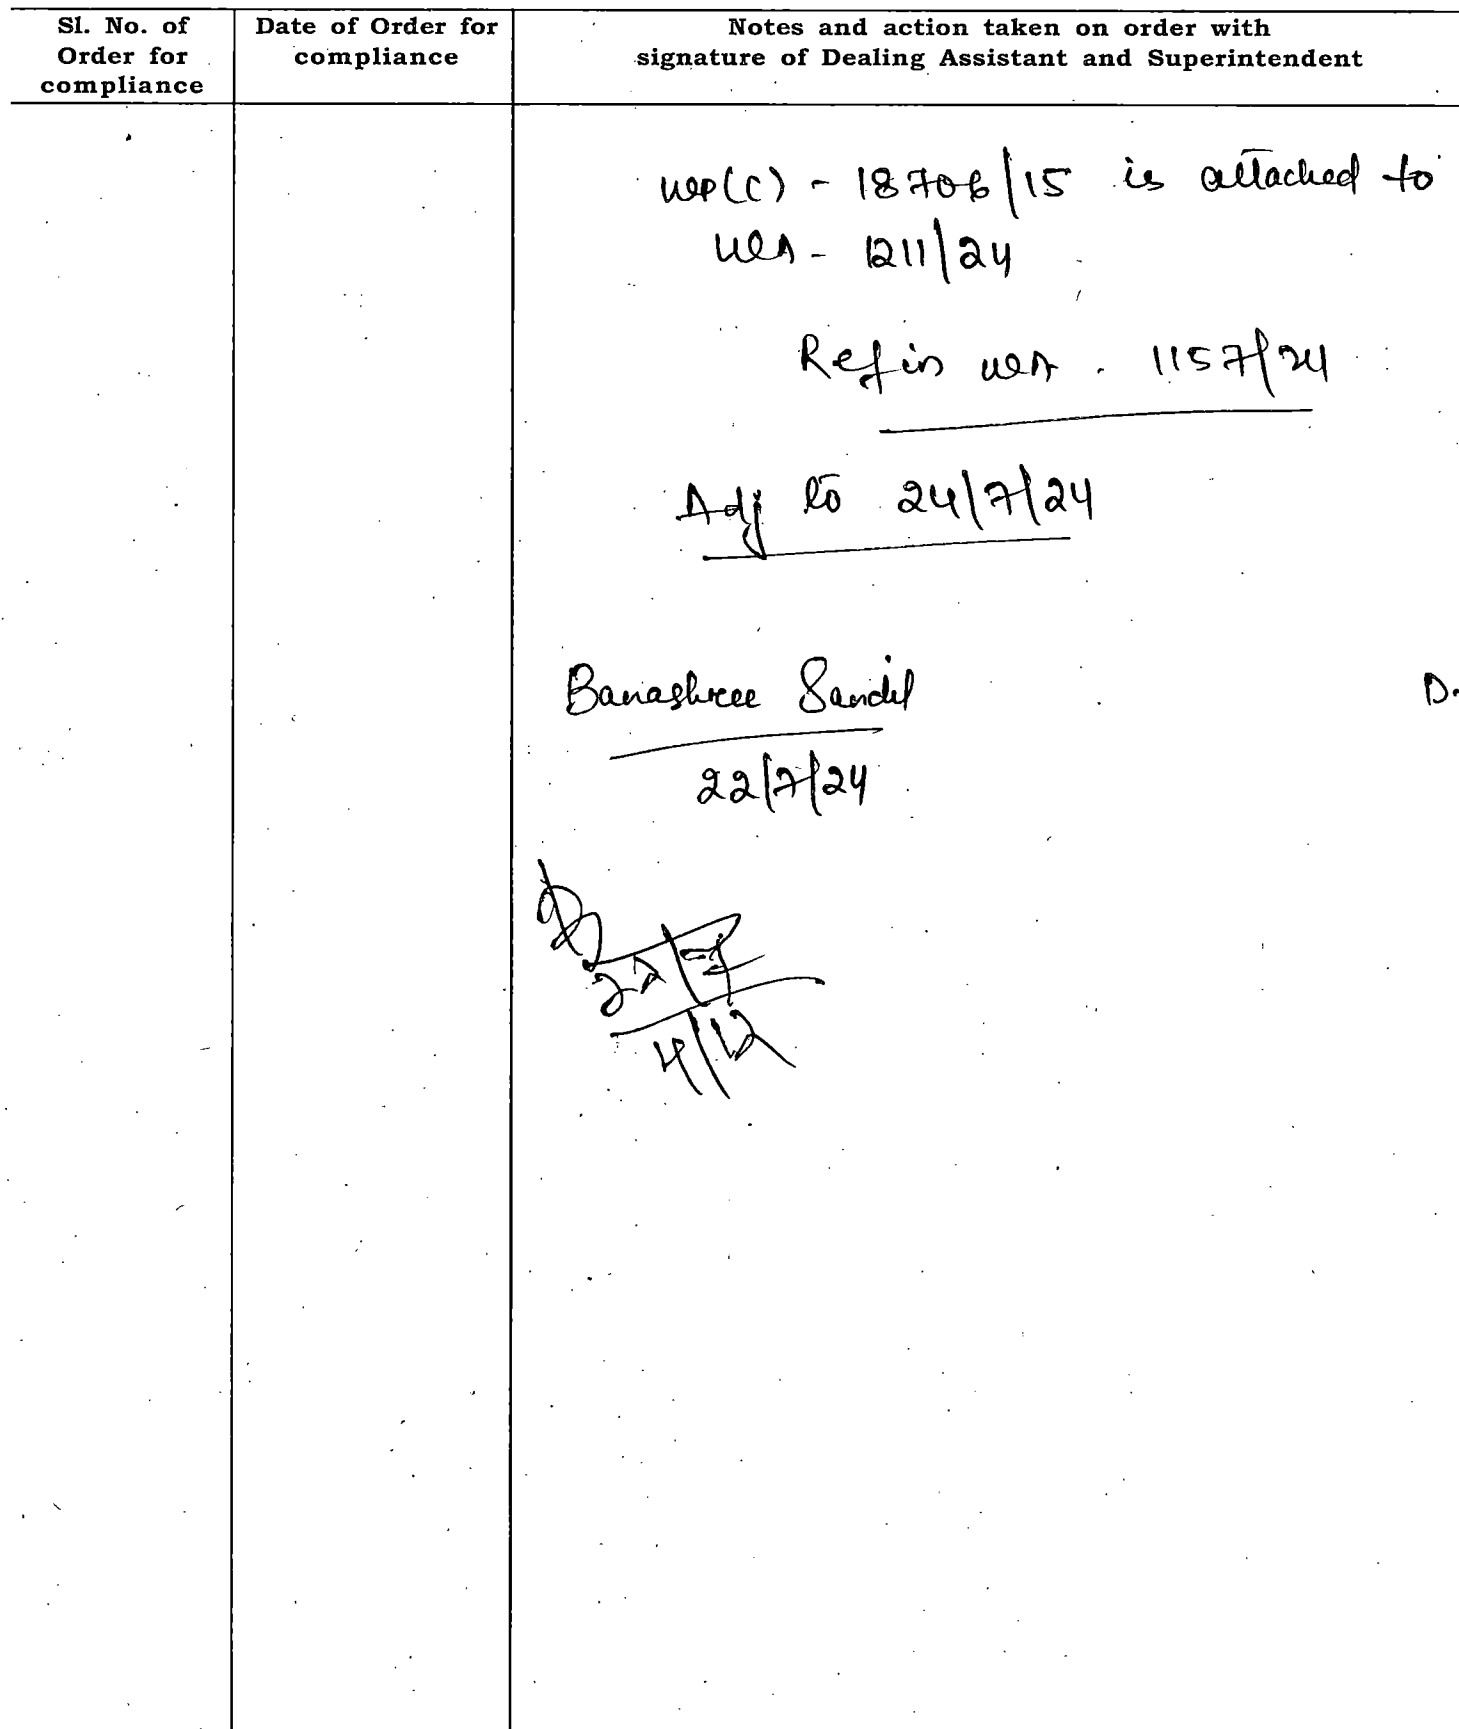 Sl. No. of Order for compliance
Date of Order for compliance
Notes and action taken on order with
signature of Dealing Assistant and Superintendent
WP(C) - 18706/15 is attached to
WA - 1211/24
Ref in WA . 1157/24
Adj to 24/7/24
Banashree Sandil
D.
22/7/24
22/7